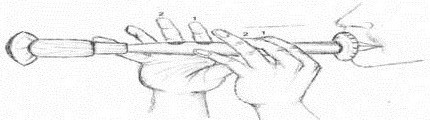 2 1
2 1